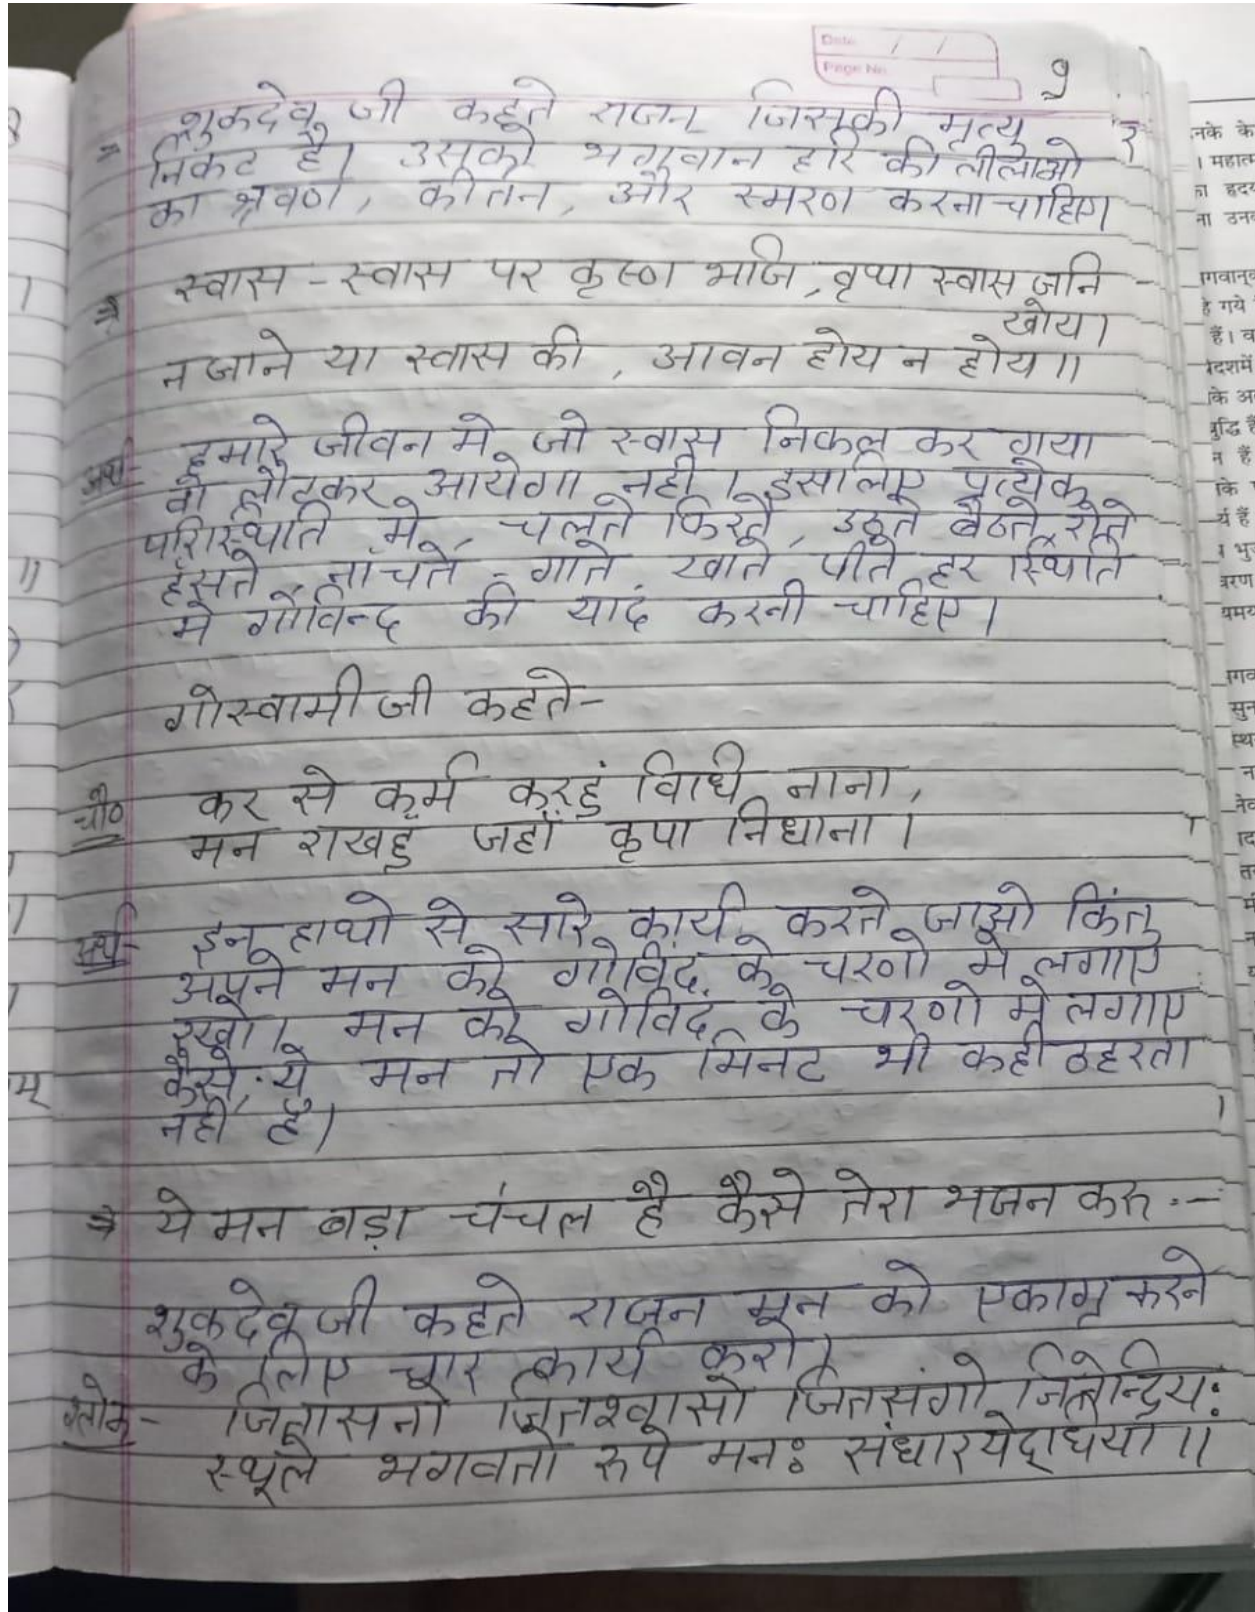 Date / /
Page No.
9
⇒ शुकदेव जी कहते राजन जिसकी मृत्यु
निकट है। उसको भगवान हरि की लीलाओ
का श्रवण, कीर्तन, और स्मरण करना चाहिए।
⇒ स्वास - स्वास पर कृष्ण भजि, वृथा स्वास जनि
खोय।
न जाने या स्वास की, आवन होय न होय।।
अर्थ- हमारे जीवन मे जो स्वास निकल कर गया
वो लौटकर आयेगा नही। इसलिए प्रत्येक
परिस्थिति मे, चलते फिरते, उठते बैठते, रोते
हँसते, नांचते - गाते, खाते पीते हर स्थिति
मे गोविन्द की याद करनी चाहिए।
गोस्वामी जी कहते-
चौ० कर से कर्म करहुं विधि नाना,
मन राखहुं जहाँ कृपा निधाना।
अर्थ- इन हाथो से सारे कार्य करते जाओ किंतु
अपने मन को गोविंद के चरणो मे लगाए
रखो। मन को गोविंद के चरणो मे लगाए
कैसे, ये मन तो एक मिनट भी कही ठहरता
नही है।
⇒ ये मन बड़ा चंचल है कैसे तेरा भजन करु :-
शुकदेव जी कहते राजन मन को एकाग्र करने
के लिए चार कार्य करो।
श्लोक- जितासनो जितश्वासो जितसंगो जितेन्द्रिय:
स्थूले भगवतो रुपे मन: संधारयेद्धिया।।